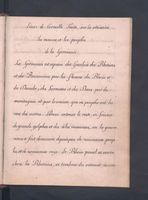 Livre de Corneille Tacite, sur la situation,
les moeurs et les peuples
de la Germanie.
La Germanie est séparée des Gaulois, des Rhétiens
et des Pannoniens par les fleuves du Rhin et
du Danube, des Sarmates et des Daces par des
montagnes et par la crainte que ces peuples ont les
uns des autres. L'Océan entoure le reste, en formant
de grands golfes et des îles immenses, où la guerre
nous a fait découvrir dernièrement
et de nouveaux rois. Le Rhin prend sa source
chez les Rhétiens, et tombe du sommet